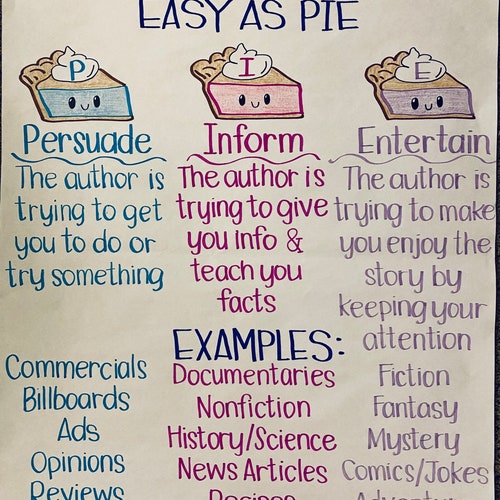 EASY AS PIE
P
Persuade
The author is
trying to get
you to do or
try something
I
Inform
The author is
trying to give
you info &
teach you
facts
E
Entertain
The author is
trying to make
you enjoy the
story by
keeping your
attention
EXAMPLES:
Commercials
Billboards
Ads
Opinions
Reviews
Documentaries
Nonfiction
History/Science
News Articles
Recipes
Fiction
Fantasy
Mystery
Comics/Jokes